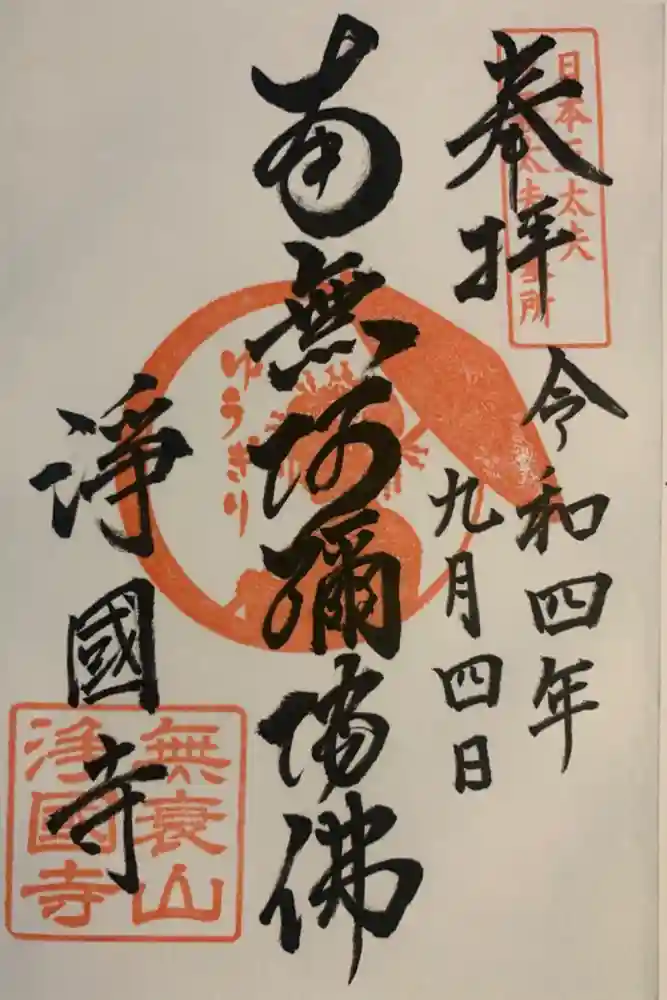 日本三太夫
太夫墓所
奉拝
令和四年
九月四日
南無阿彌陀佛
ゆうぎり
淨國寺
無衰山
浄國寺